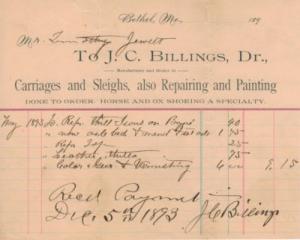 Bethel, Me. 189
Mr. Jewett
TO J. C. BILLINGS, DR.,
Manufacturer and dealer in
Carriages and Sleighs, also Repairing and Painting
DONE TO ORDER. HORSE AND OX SHOEING A SPECIALTY.
May 1893 To Repr. on 40
" new 1 75
Repr. 25
" Leather 75
" Color & Varnishing 6 00 9.15
Rec'd Payment
Dec. 5th 1893 J C Billings